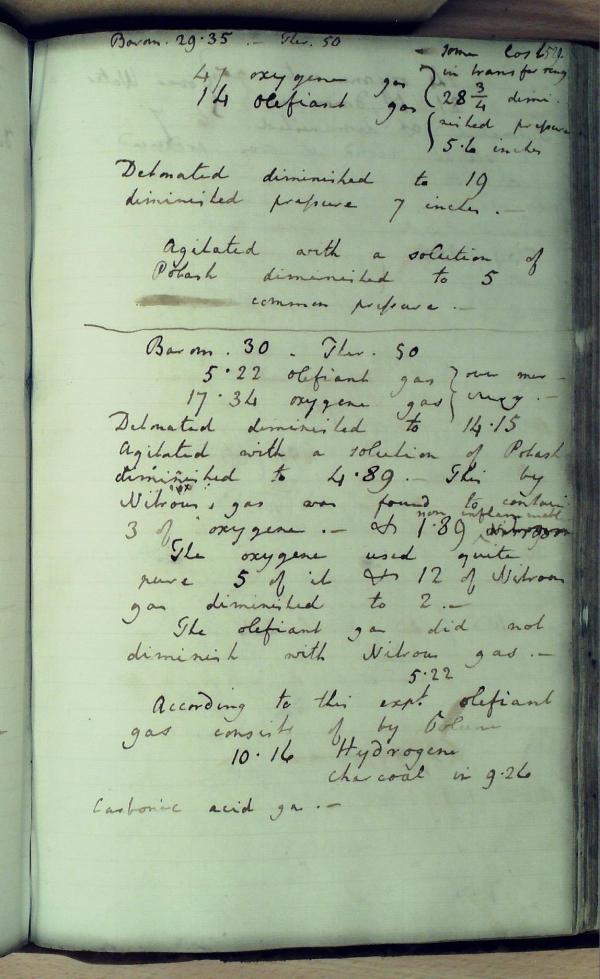 Barom. 29·35 .– Ther. 50
some lost
47 oxygene gas in transferring
14 olefiant gas 28 3/4 dimi-
nished pressure
5·6 inches
Detonated diminished to 19
diminished pressure 7 inches .–
Agitated with a solution of
Potash diminished to 5
common pressure .–
Barom. 30 . Ther. 50
5·22 olefiant gas over mer-
17·34 oxygene gas cury .–
Detonated diminished to 14·15
Agitated with a solution of Potash
diminished to 4·89 .– This by
Nitrous gas was found to contain
3 of oxygene .– & 1·89 non inflammable
The oxygene used quite
pure 5 of it & 12 of Nitrous
gas diminished to 2 .–
The olefiant gas did not
diminish with Nitrous gas .–
5·22
According to this expt. olefiant
gas consists of by Volume
10·16 Hydrogene
charcoal in 9·26
Carbonic acid ga .–